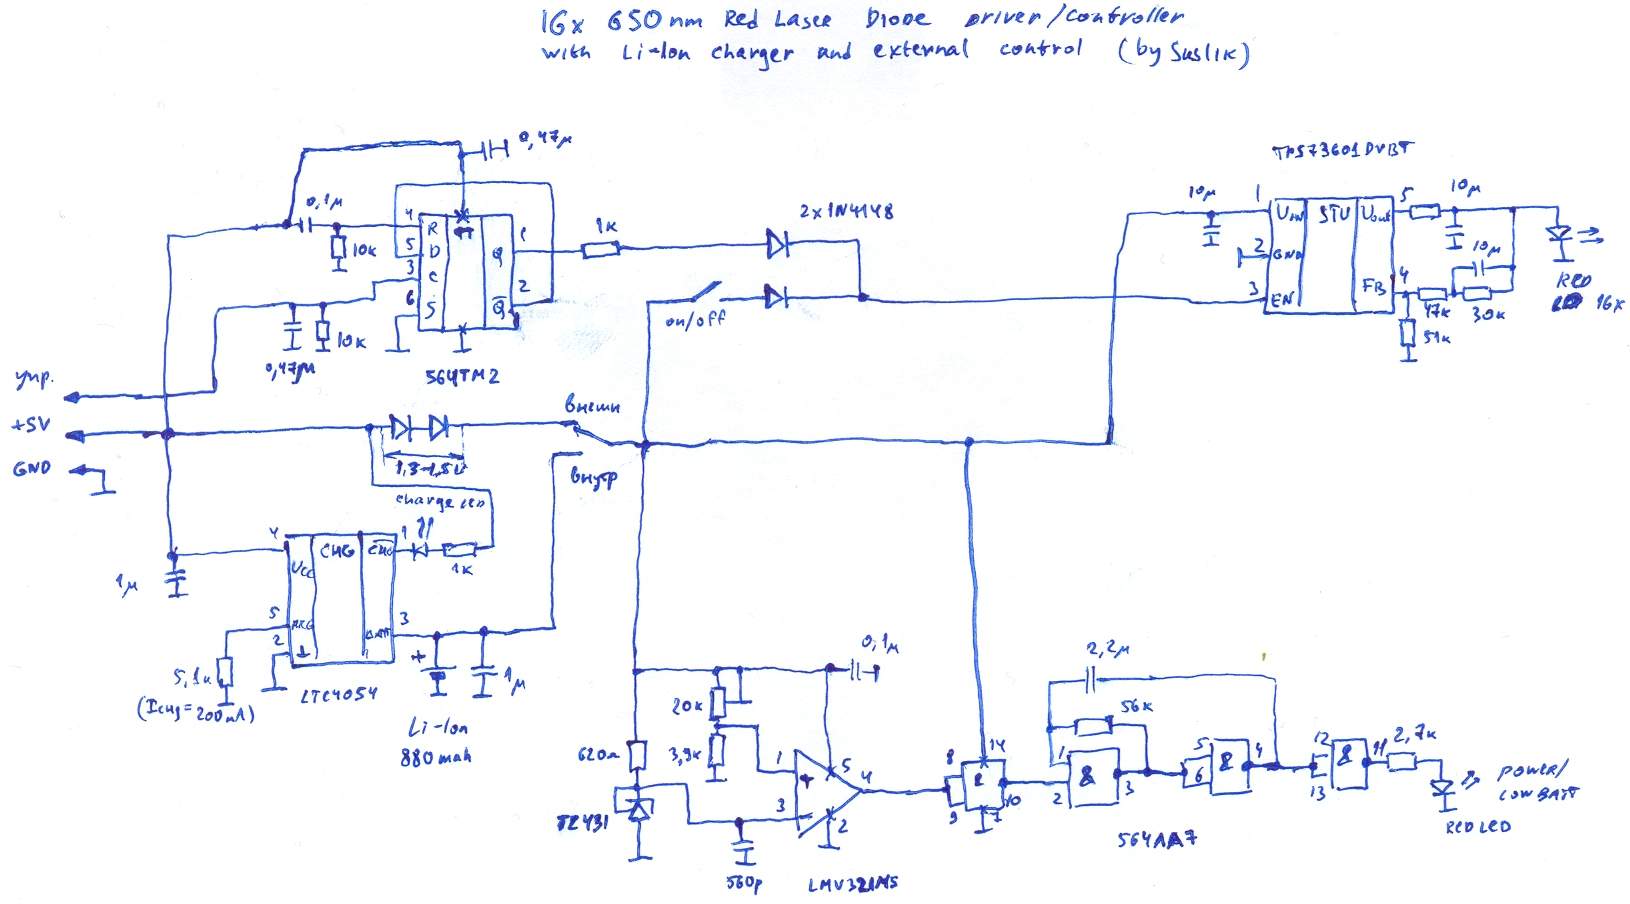 16x 650nm Red Laser Diode driver/controller
with Li-Ion charger and external control (by Suslik)
0,47µ
0,1µ
10k
4
5
3
6
R
D
C
S
Q
Q
1
2
0,47µ
10k
564TM2
1k
2x1N4148
on/off
TPS73601DVBT
10µ
1
2
3
Uin
GND
EN
STU
Uout
FB
5
4
10µ
10µ
47k
30k
51k
RED
16x
упр.
+5V
GND
1,3-1,5V
внешн
внутр
charge LED
1k
1µ
4
5
2
Vcc
PRG
CHG
CHG
BATT
1
3
5,1k
(Ichg=200mA)
LTC4054
+
1µ
Li-Ion
880 mah
0,1µ
20k
3,9k
620Ω
TL431
560p
1
3
+
5
4
2
LMV321M5
8
9
14
&
7
10
2,2µ
56k
1
2
&
3
5
6
&
4
12
13
&
11
2,7k
564ЛА7
POWER/
LOWBATT
RED LED